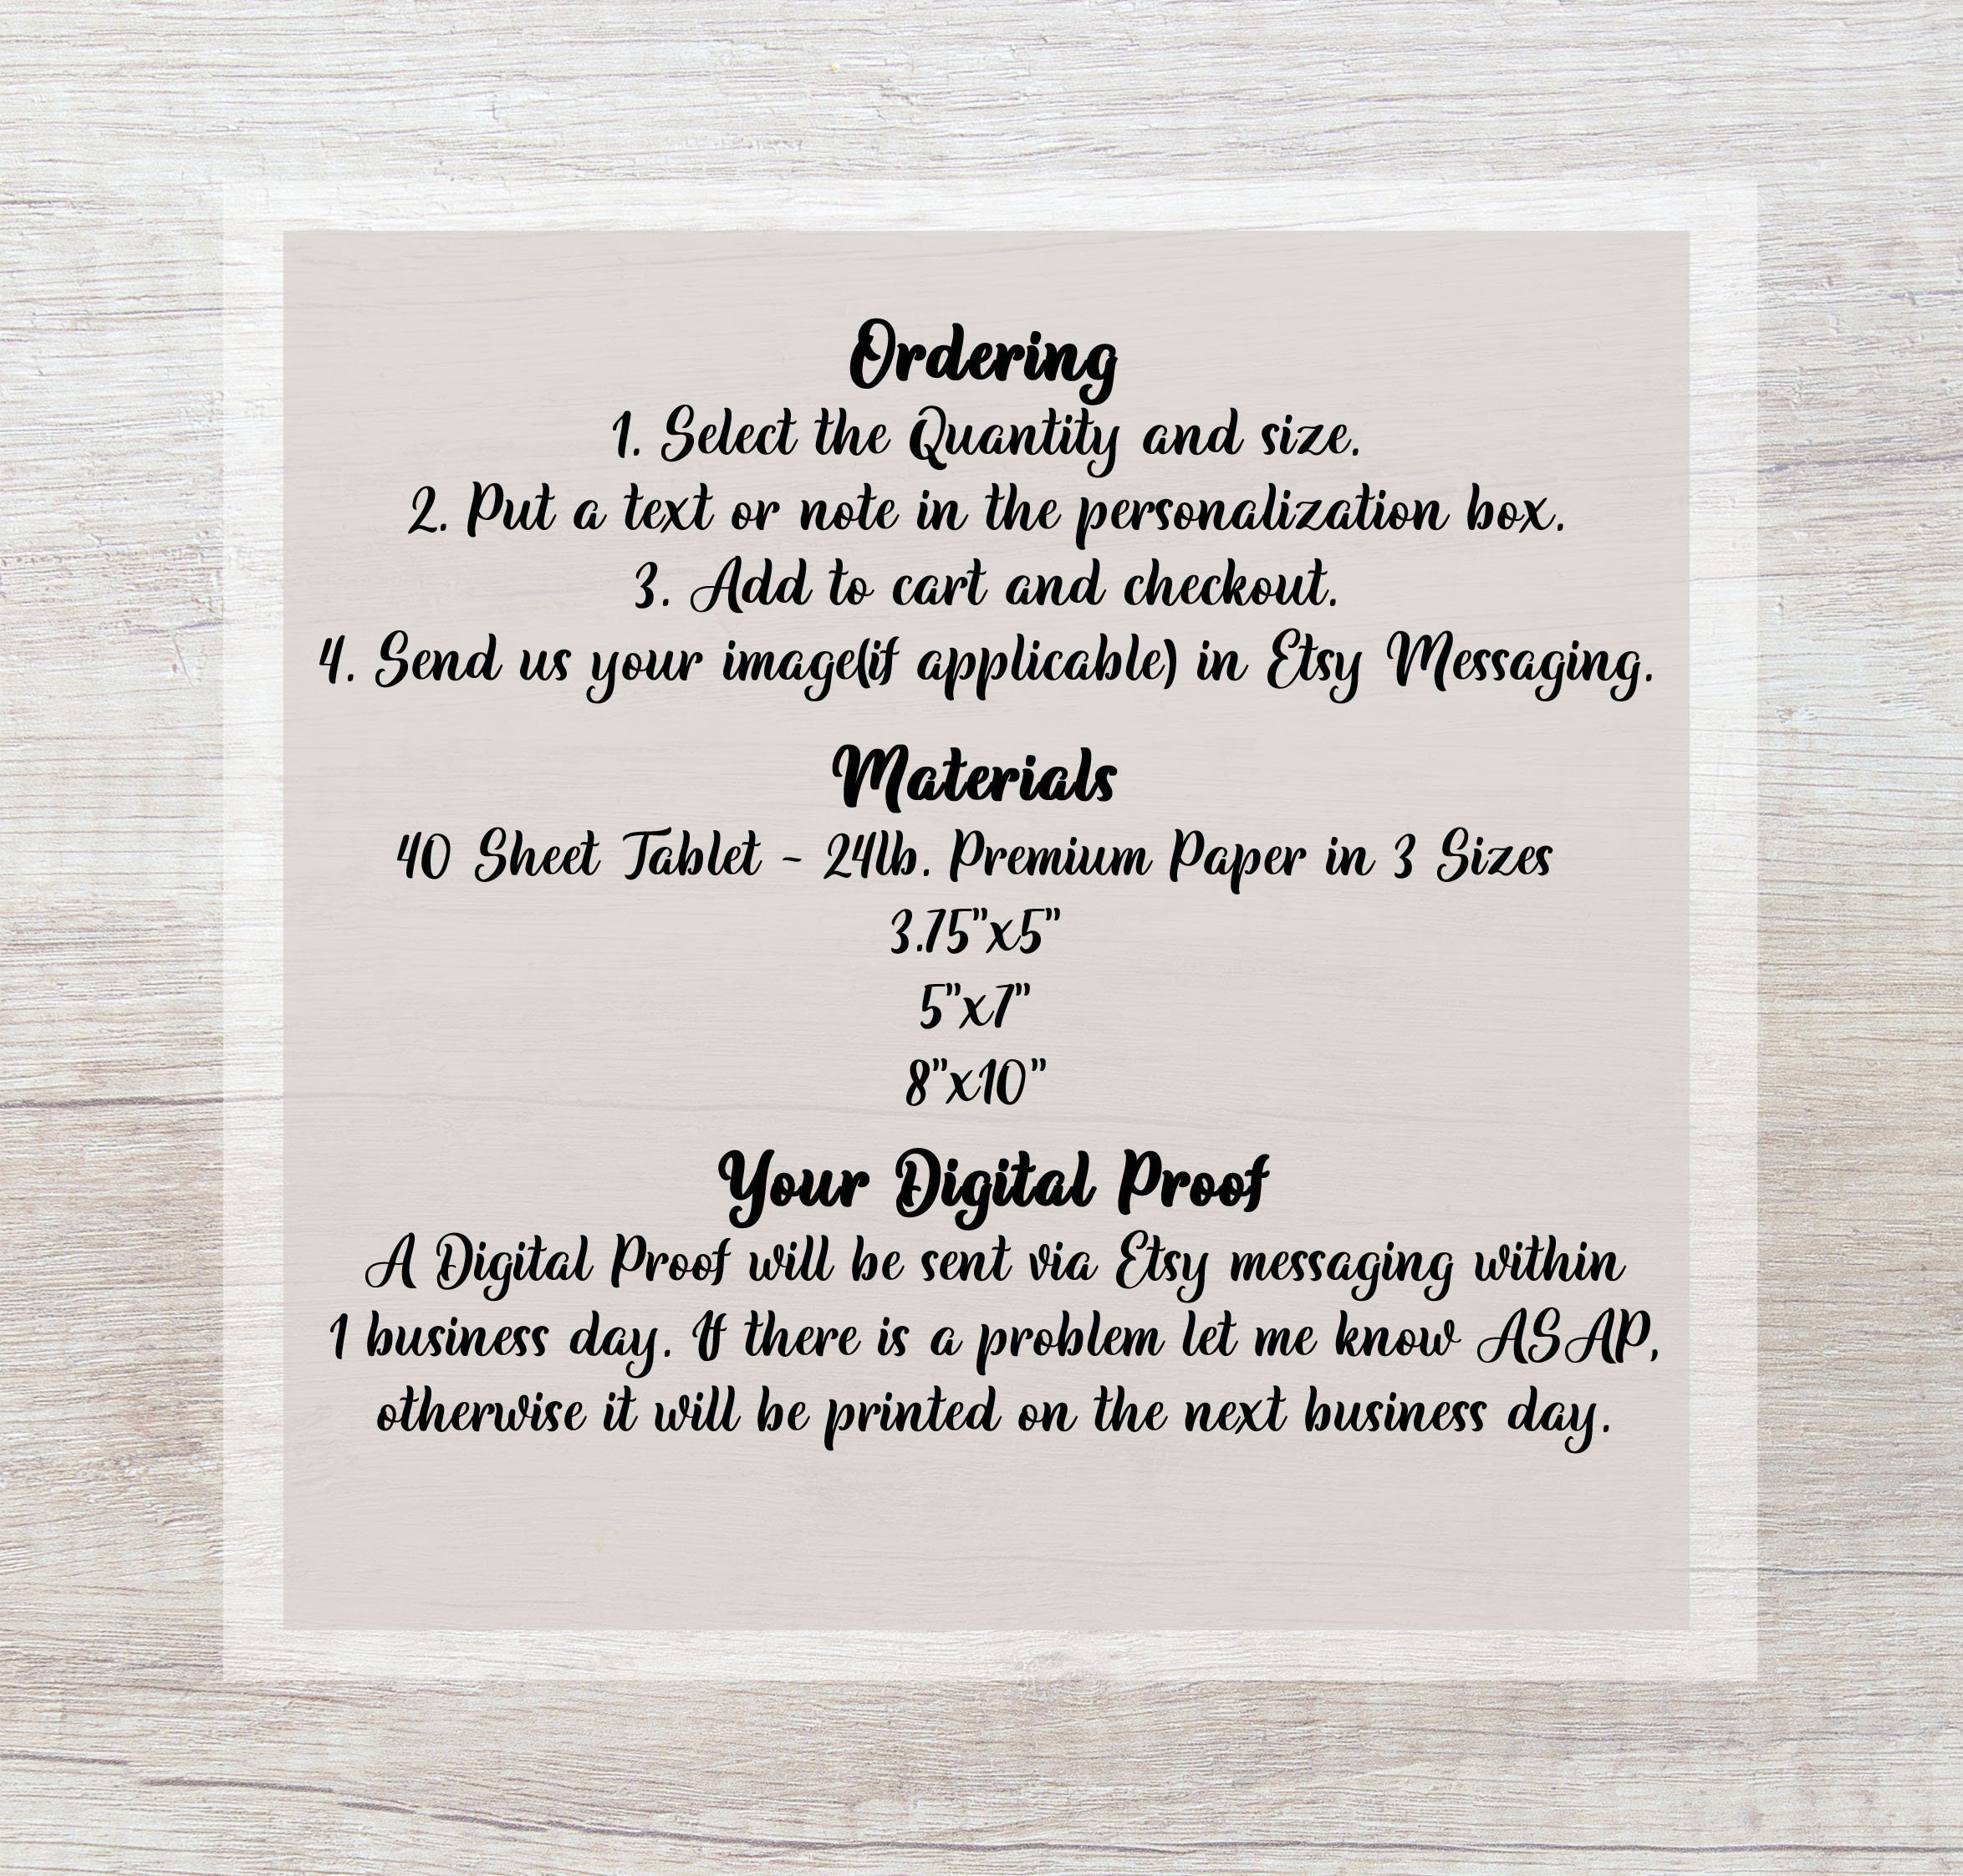 Ordering
1. Select the Quantity and size.
2. Put a text or note in the personalization box.
3. Add to cart and checkout.
4. Send us your image(if applicable) in Etsy Messaging.
Materials
40 Sheet Tablet - 24lb. Premium Paper in 3 Sizes
3.75"x5"
5"x7"
8"x10"
Your Digital Proof
A Digital Proof will be sent via Etsy messaging within
1 business day. If there is a problem let me know ASAP,
otherwise it will be printed on the next business day.